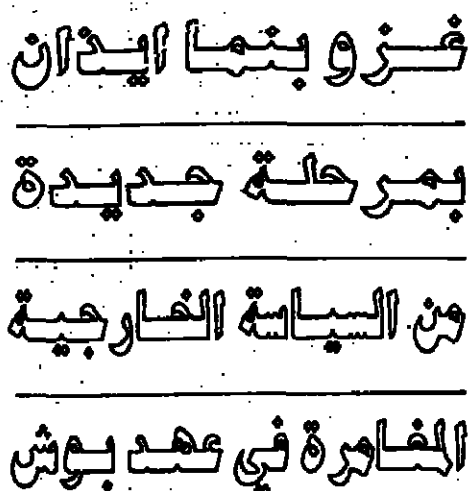 غزو بنما ايذان
بمرحلة جديدة
من السياسة الخارجية
المغامرة في عهد بوش